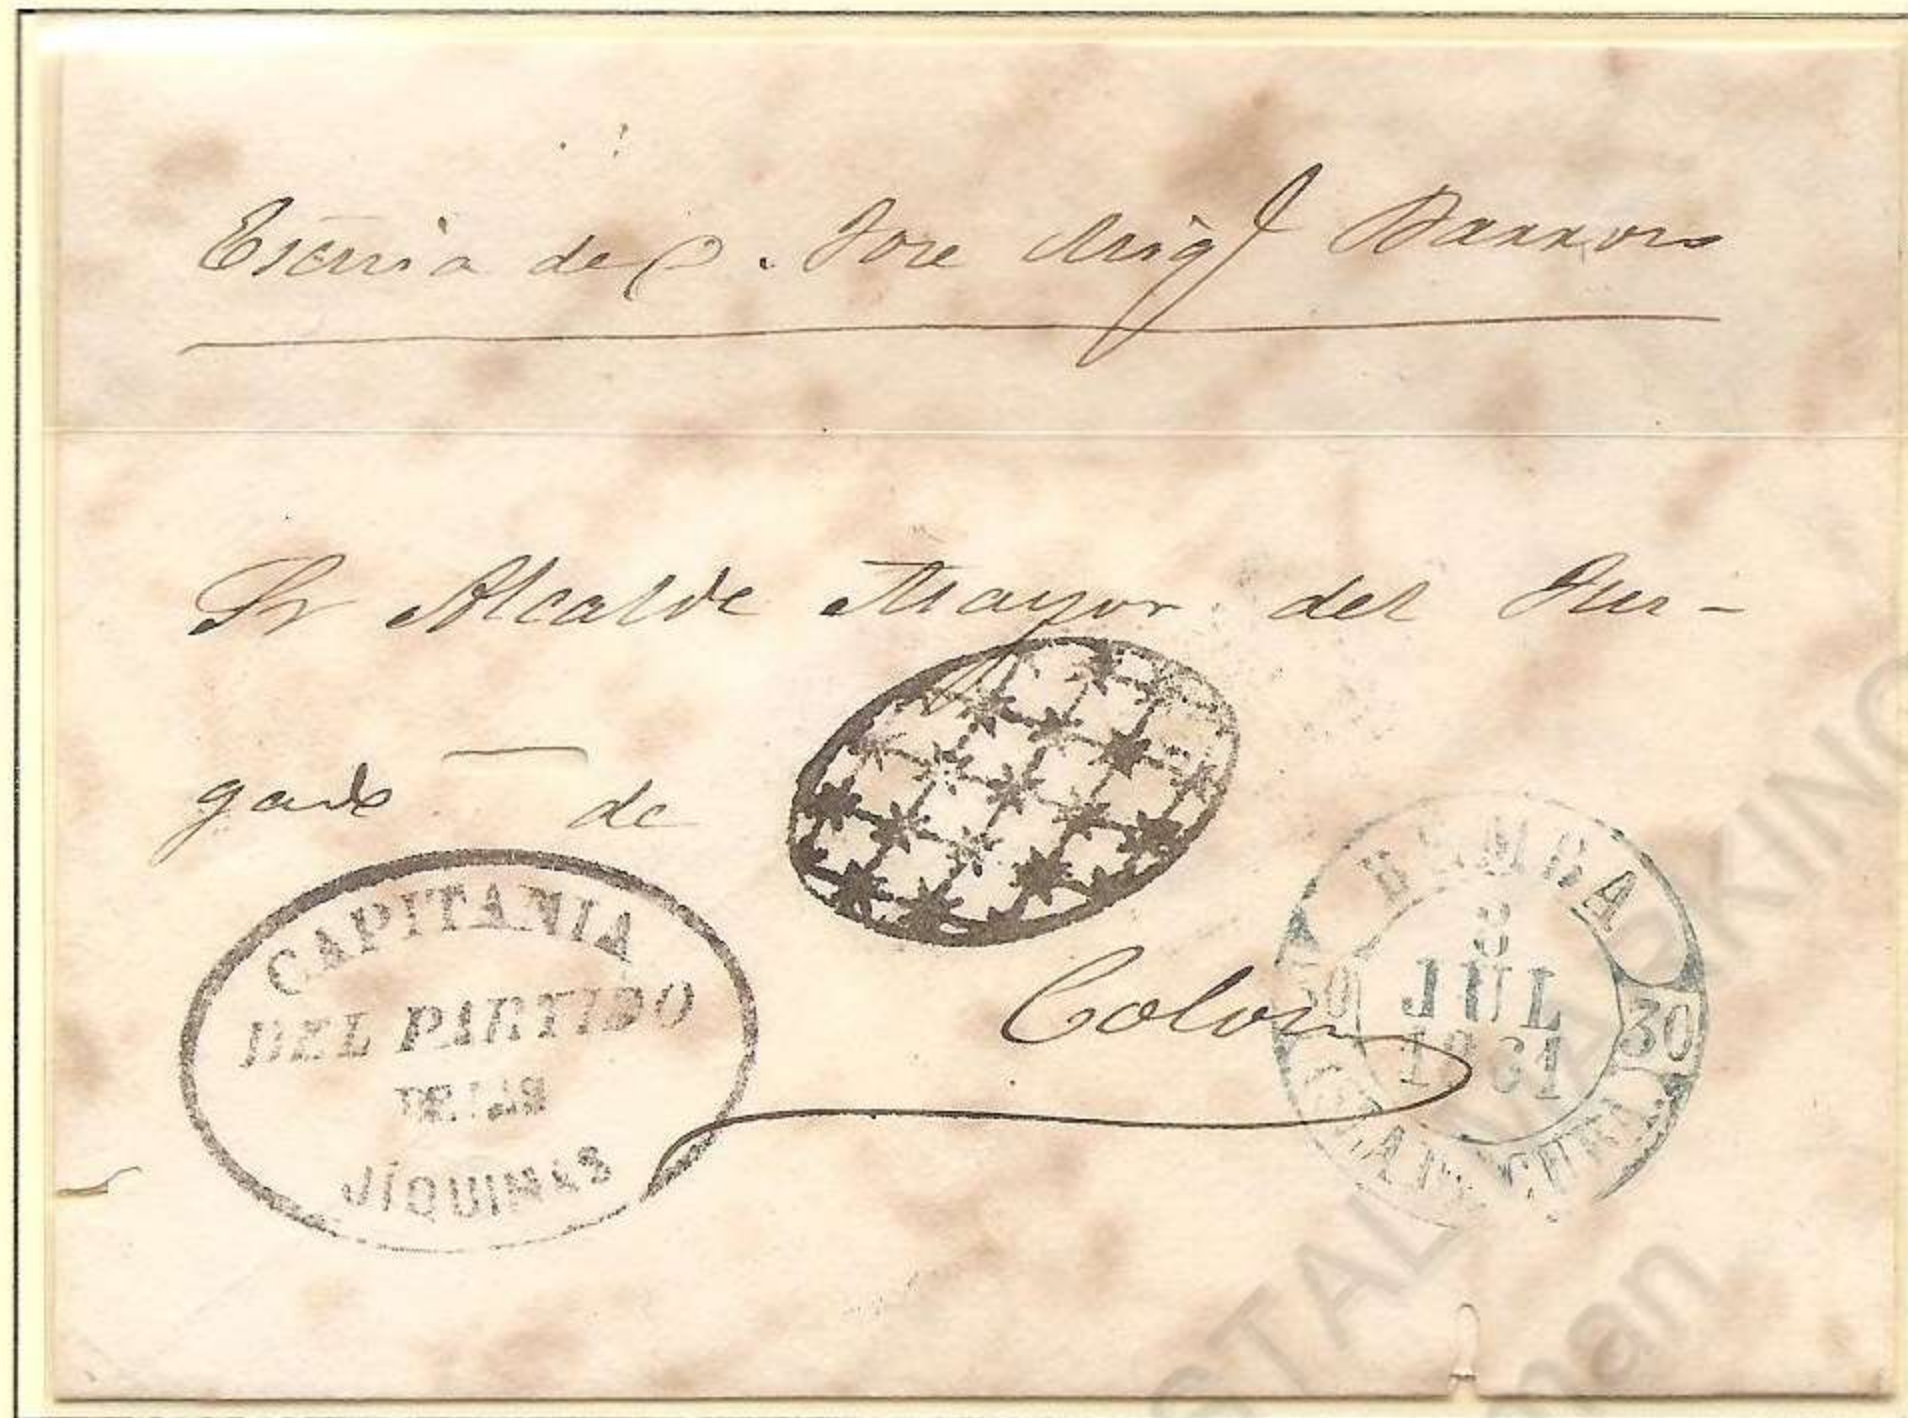 Escnia de D. Jose Migl Barrons
Sr Alcalde Mayor del Juz-
gado de
Colon
CAPITANIA
DEL PARTIDO
DE LAS
JIQUIMAS
BEMBA
8
JUL
1861
30 30